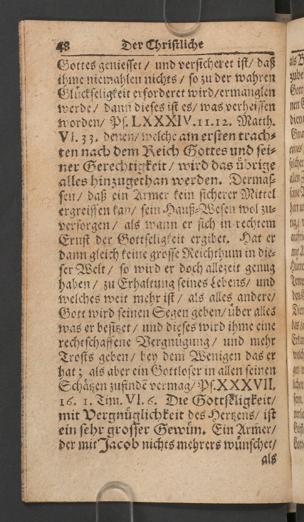 48 Der Christliche
Gottes geniesset / und versicheret ist / daß
ihme niemahlen nichts / so zu der wahren
Glückseligkeit erforderet wird / ermanglen
werde / dann dieses ist es / was verheissen
worden / Ps. LXXXIV. 11. 12. Matth.
VI. 33. denen / welche am ersten trach-
ten nach dem Reich Gottes und sei-
ner Gerechtigkeit / wird das übrige
alles hinzugethan werden. Dermas-
sen / daß ein Armer kein sicherer Mittel
ergreissen kan / sein Hauß-Wesen wol zu-
versorgen / als wann er sich in rechtem
Ernst der Gottseligkeit ergibet. Hat er
dann gleich keine grosse Reichthum in die-
ser Welt / so wird er doch allezeit genug
haben / zu Erhaltung seines Lebens / und
welches weit mehr ist / als alles andere /
Gott wird seinen Segen geben / über alles
was er besitzet / und dieses wird ihme eine
rechtschaffene Vergnügung / und mehr
Trosts geben / bey dem Wenigen das er
hat ; als aber ein Gottloser in allen seinen
Schätzen zufinde vermag / Ps. XXXVII.
16. 1. Tim. VI. 6. Die Gottseligkeit /
mit Vergnüglichkeit des Hertzens / ist
ein sehr grosser Gewiñ. Ein Armer /
der mit Jacob nichts mehrers wünschet /
als